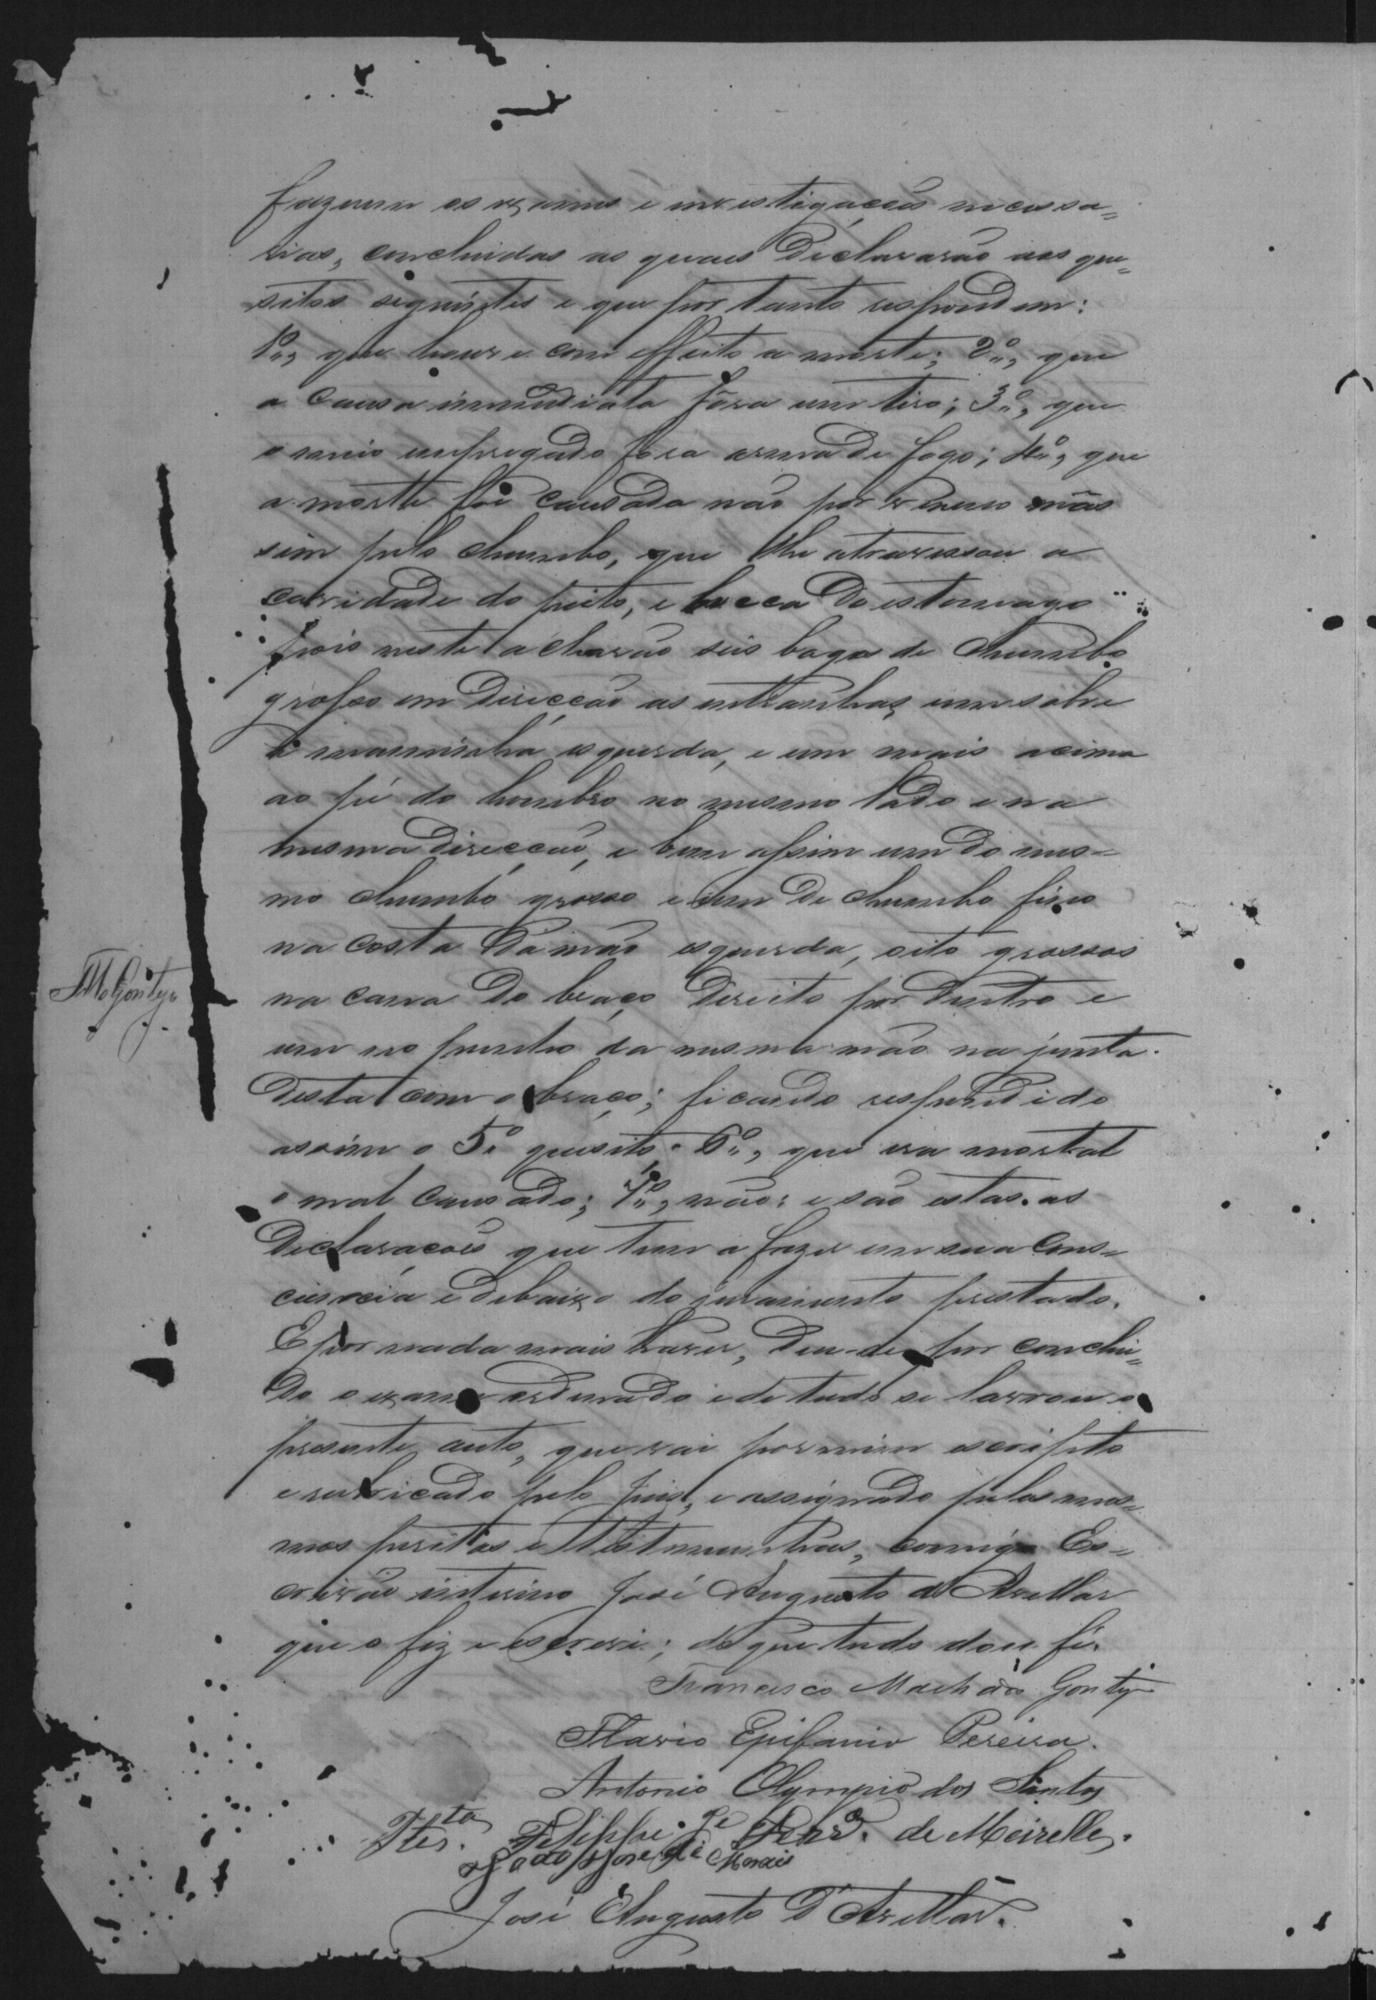 fazerem os exames e investigações necessa-
rias, concluidas as quaes declararão aos que-
sitos seguintes e que por tanto respondem:
1º, que houve com effeito a morte; 2º, que
a causa immediata fôra um tiro; 3º, que
o meio empregado fôra arma de fogo; 4º, que
a morte foi causada não por veneno mas
sim pelo chumbo, que lhe atravessou a
cavidade do peito, e bocca do estomago
pois neste acharão seis bagos de chumbo
grosso em direcção as entranhas, um sobre
a maminha esquerda, e um mais acima
ao pé do hombro no mesmo lado e na
mesma direcção, e bem assim um do mes-
mo chumbo grosso e um de chumbo fino
na costa da mão esquerda, oito grossos
na cana do braço direito por dentro e
um no punho da mesma mão na junta
desta com o braço; ficando respondido
assim o 5º quesito. 6º, que era mortal
o mal causado; 7º, não: e são estas as
declarações que tem a fazer em sua cons-
ciencia e debaixo do juramento prestado.
E por nada mais haver, deu-se por conclui-
do o exame ordenado e de tudo se lavrou o
presente auto, que vai por mim escripto
e rubricado pelo Juiz, e assignado pelos mes-
mos peritos e testemunhas, comigo Es-
crivão interino José Augusto de Avellar
que o fiz e escrevi; do que tudo dou fé.
Francisco Machado Gontijo
Flavio Epifanio Pereira.
Antonio Olympio dos Santos
Felippe de de Meirelles.
João José de Morais
José Augusto d'Avellar.
MGontijo